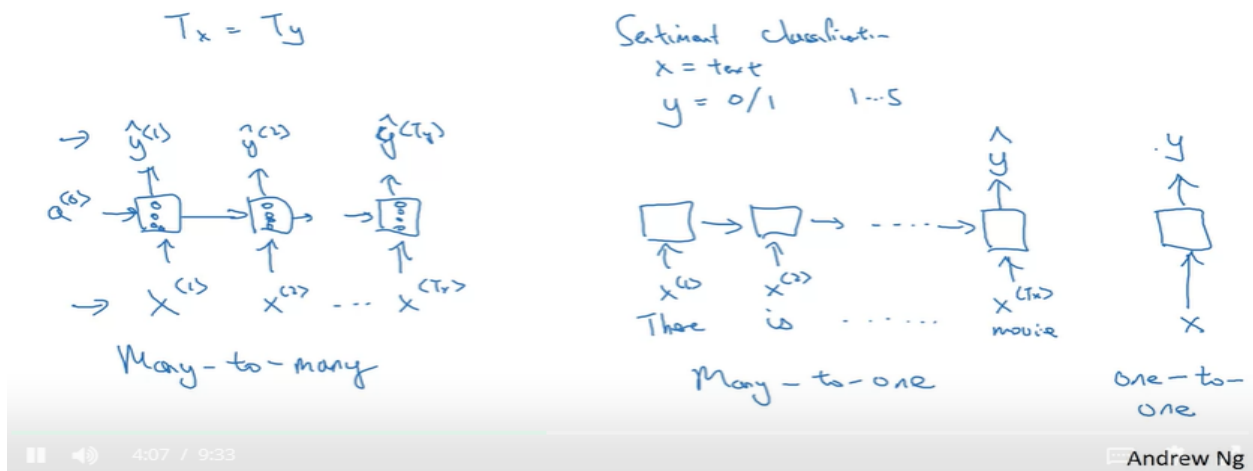 Tx = Ty
ŷ<1> ŷ<2> ŷ<Ty>
a<0>
x<1> x<2> ... x<Tx>
Many-to-many
Sentiment classification
x = text
y = 0/1 1...5
ŷ
x<1> x<2> x<Tx>
There is ...... movie
Many-to-one
y
x
one-to-
one
4:07 / 9:33
Andrew Ng